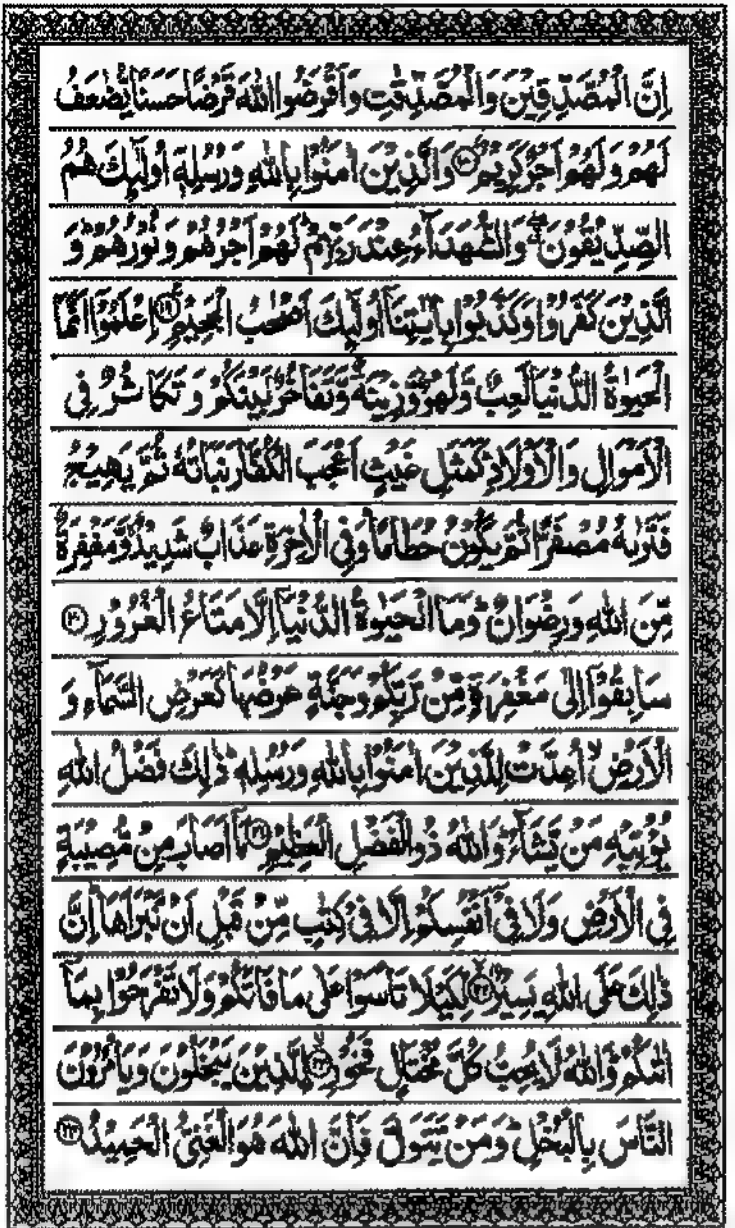 اِنَّ الْمُصَّدِّقِيْنَ وَالْمُصَّدِّقٰتِ وَاَقْرَضُوا اللّٰهَ قَرْضًا حَسَنًا يُّضٰعَفُ
لَهُمْ وَلَهُمْ اَجْرٌ كَرِيْمٌ ﴿۱۸﴾ وَالَّذِيْنَ اٰمَنُوْا بِاللّٰهِ وَرُسُلِهٖۤ اُولٰٓئِكَ هُمُ
الصِّدِّيْقُوْنَ ۖۗ وَالشُّهَدَآءُ عِنْدَ رَبِّهِمْ ؕ لَهُمْ اَجْرُهُمْ وَنُوْرُهُمْ ؕ وَ
الَّذِيْنَ كَفَرُوْا وَكَذَّبُوْا بِاٰيٰتِنَاۤ اُولٰٓئِكَ اَصْحٰبُ الْجَحِيْمِ ﴿۱۹﴾ اِعْلَمُوْۤا اَنَّمَا
الْحَيٰوةُ الدُّنْيَا لَعِبٌ وَّلَهْوٌ وَّزِيْنَةٌ وَّتَفَاخُرٌۢ بَيْنَكُمْ وَتَكَاثُرٌ فِى
الْاَمْوَالِ وَالْاَوْلَادِ ؕ كَمَثَلِ غَيْثٍ اَعْجَبَ الْكُفَّارَ نَبَاتُهٗ ثُمَّ يَهِيْجُ
فَتَرٰىهُ مُصْفَرًّا ثُمَّ يَكُوْنُ حُطَامًا ؕ وَفِى الْاٰخِرَةِ عَذَابٌ شَدِيْدٌ ۙ وَّمَغْفِرَةٌ
مِّنَ اللّٰهِ وَرِضْوَانٌ ؕ وَمَا الْحَيٰوةُ الدُّنْيَاۤ اِلَّا مَتَاعُ الْغُرُوْرِ ﴿۲۰﴾
سَابِقُوْۤا اِلٰى مَغْفِرَةٍ مِّنْ رَّبِّكُمْ وَجَنَّةٍ عَرْضُهَا كَعَرْضِ السَّمَآءِ وَ
الْاَرْضِ ۙ اُعِدَّتْ لِلَّذِيْنَ اٰمَنُوْا بِاللّٰهِ وَرُسُلِهٖ ؕ ذٰلِكَ فَضْلُ اللّٰهِ
يُؤْتِيْهِ مَنْ يَّشَآءُ ؕ وَاللّٰهُ ذُو الْفَضْلِ الْعَظِيْمِ ﴿۲۱﴾ مَاۤ اَصَابَ مِنْ مُّصِيْبَةٍ
فِى الْاَرْضِ وَلَا فِىْۤ اَنْفُسِكُمْ اِلَّا فِىْ كِتٰبٍ مِّنْ قَبْلِ اَنْ نَّبْرَاَهَا ؕ اِنَّ
ذٰلِكَ عَلَى اللّٰهِ يَسِيْرٌ ﴿۲۲﴾ لِّكَيْلَا تَاْسَوْا عَلٰى مَا فَاتَكُمْ وَلَا تَفْرَحُوْا بِمَاۤ
اٰتٰىكُمْ ؕ وَاللّٰهُ لَا يُحِبُّ كُلَّ مُخْتَالٍ فَخُوْرِ ﴿۲۳﴾ ۙ الَّذِيْنَ يَبْخَلُوْنَ وَيَاْمُرُوْنَ
النَّاسَ بِالْبُخْلِ ؕ وَمَنْ يَّتَوَلَّ فَاِنَّ اللّٰهَ هُوَ الْغَنِىُّ الْحَمِيْدُ ﴿۲۴﴾